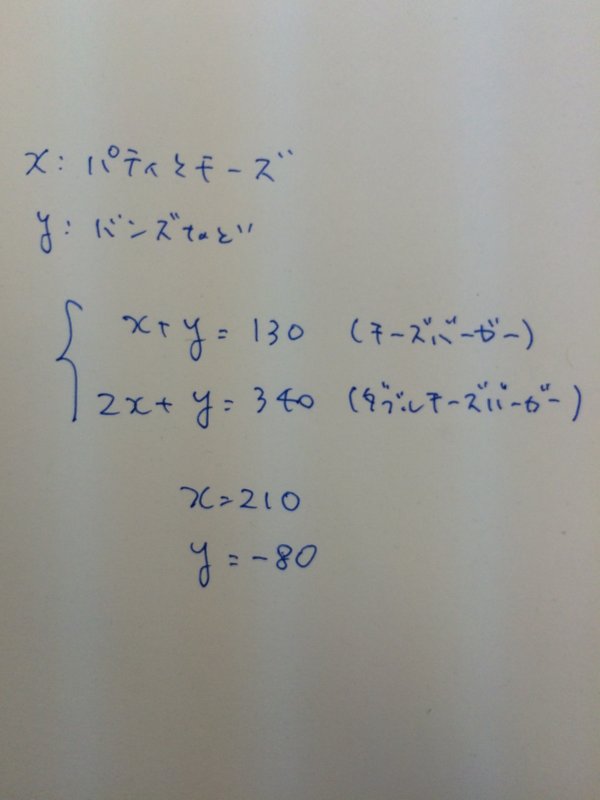 x: パティとチーズ
y: バンズなど
x+y=130 (チーズバーガー)
2x+y=340 (ダブルチーズバーガー)
x=210
y=-80